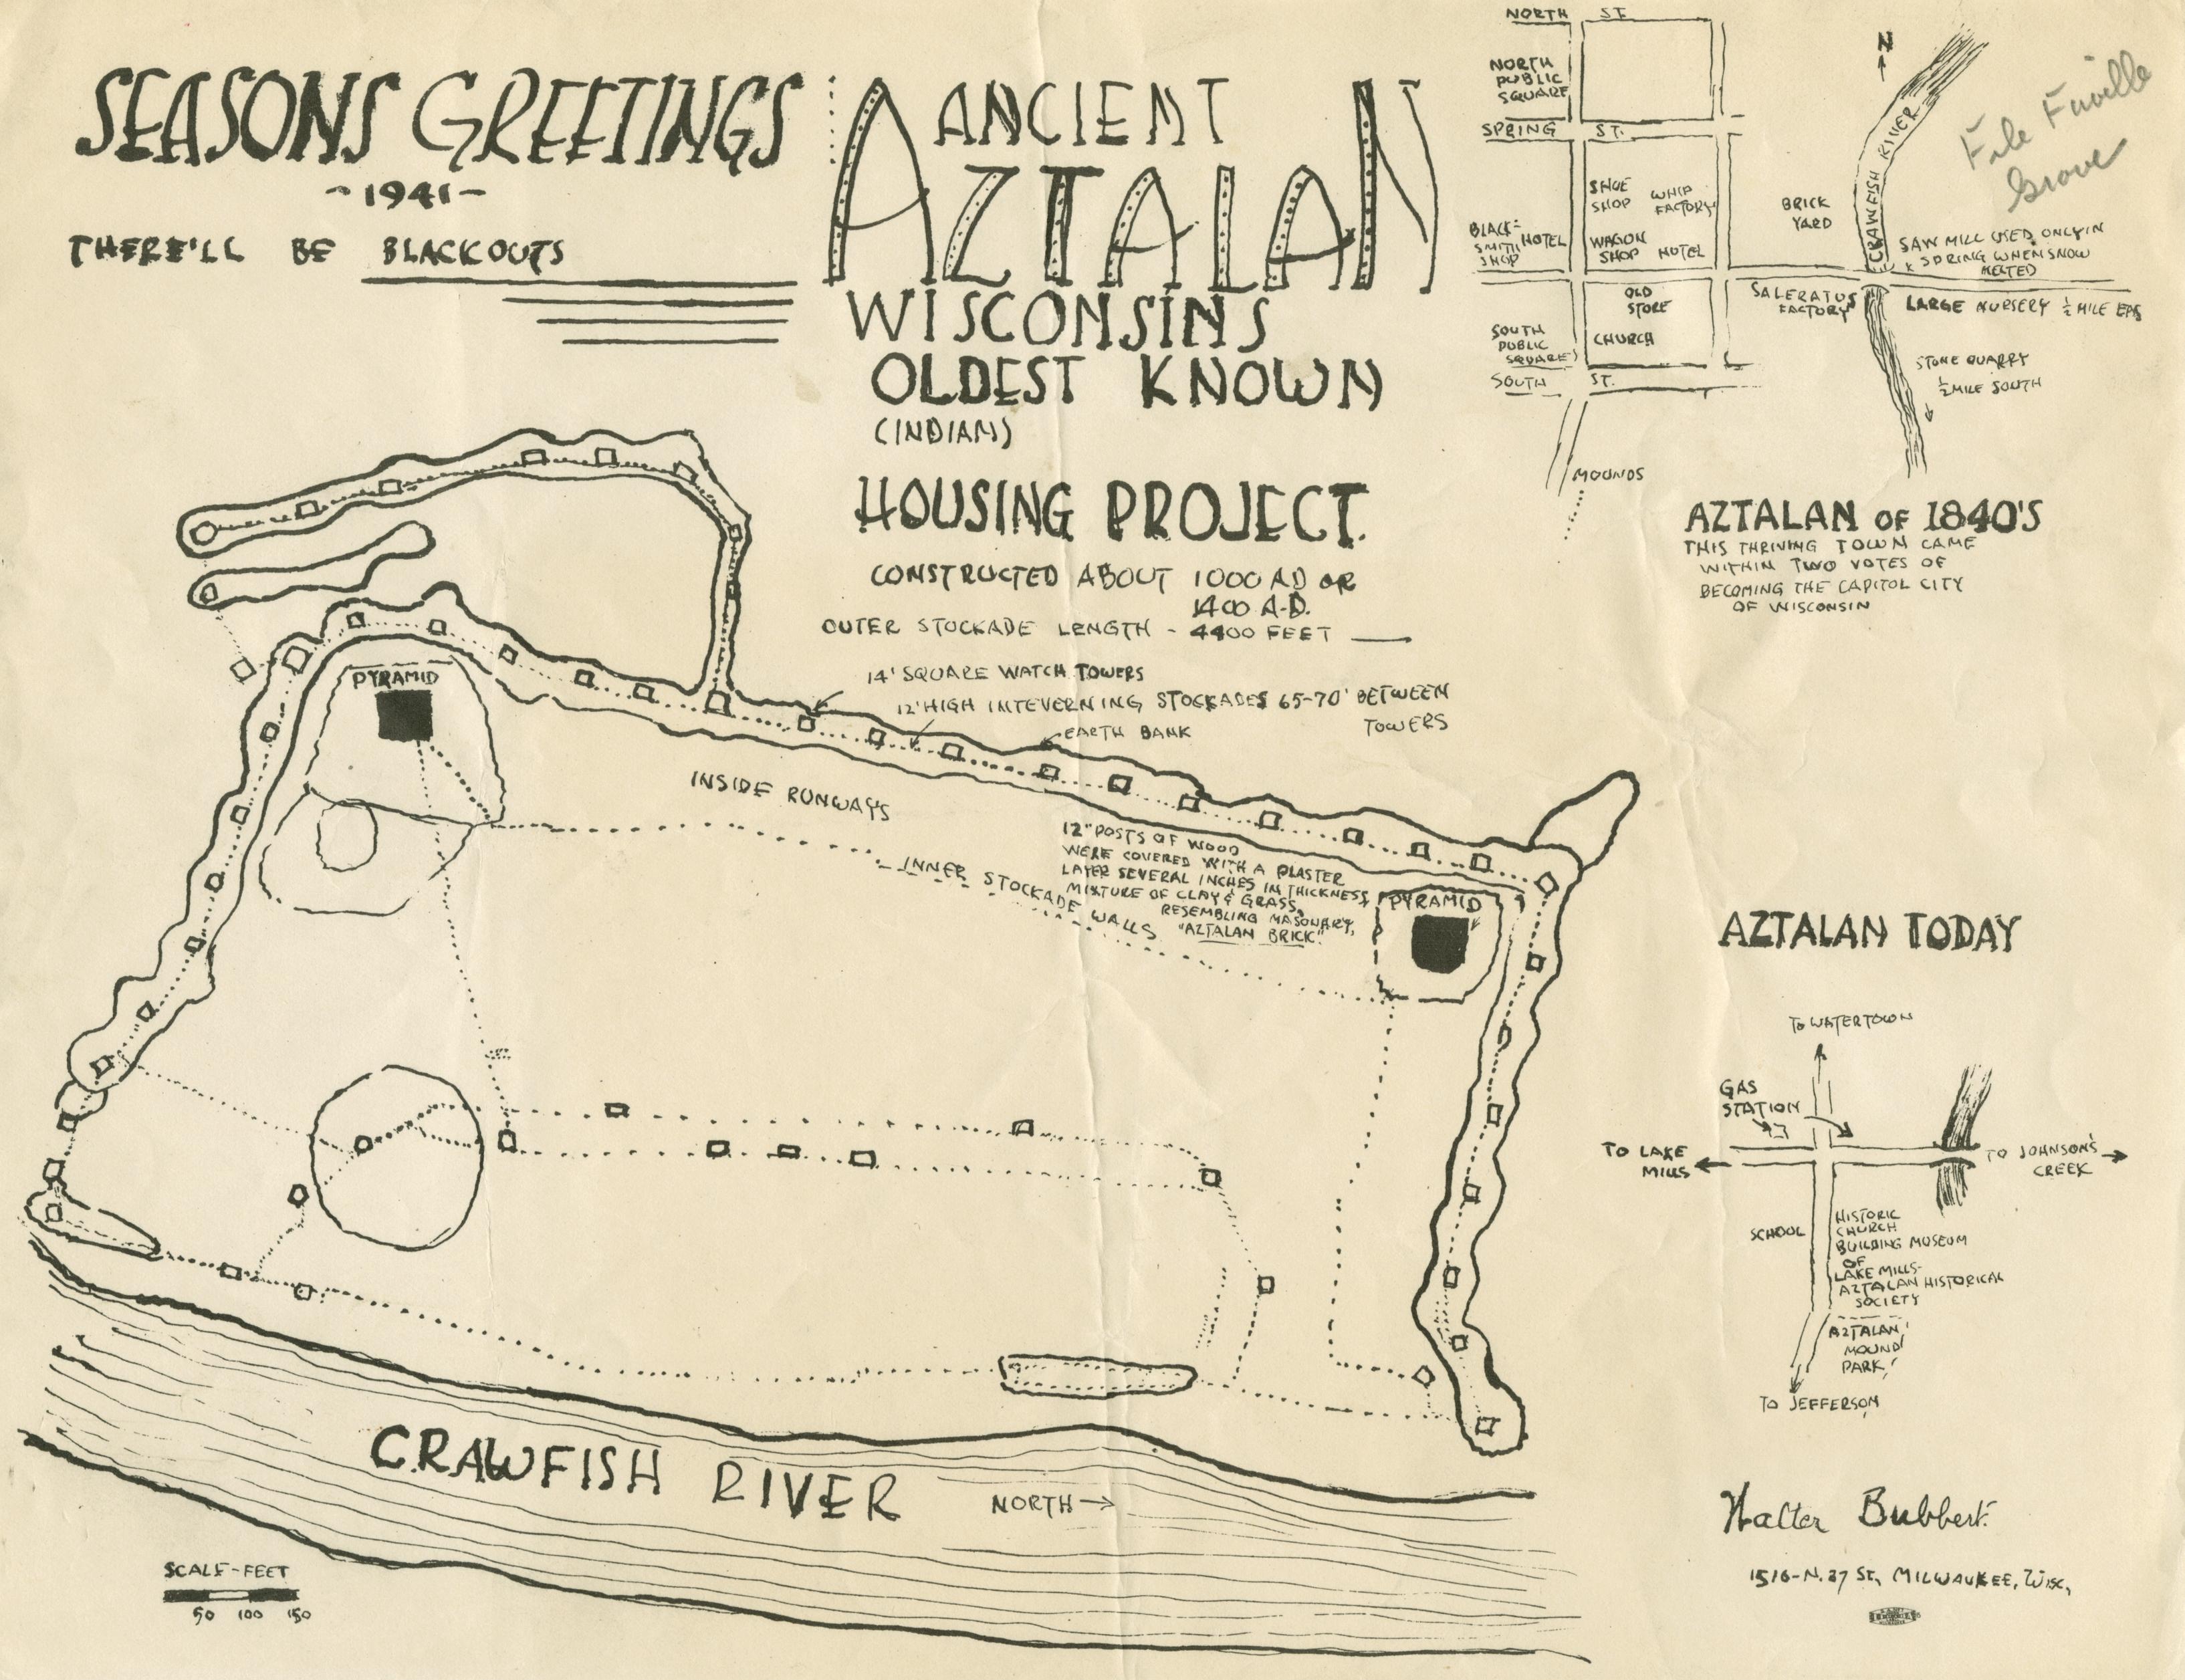 SEASONS GREETINGS
~1941~
THERE'LL BE BLACKOUTS
ANCIENT
AZTALAN
WISCONSINS
OLDEST KNOWN
(INDIAN)
HOUSING PROJECT.
CONSTRUCTED ABOUT 1000 AD OR
1400 A.D.
OUTER STOCKADE LENGTH - 4400 FEET
14' SQUARE WATCH TOWERS
12' HIGH INTEVERNING STOCKADES 65-70' BETWEEN
TOWERS
EARTH BANK
PYRAMID
INSIDE RUNWAYS
INNER STOCKADE WALLS
12" POSTS OF WOOD
WERE COVERED WITH A PLASTER
LAYER SEVERAL INCHES IN THICKNESS,
MIXTURE OF CLAY & GRASS,
RESEMBLING MASONARY,
"AZTALAN BRICK."
PYRAMID
CRAWFISH RIVER
NORTH →
SCALE-FEET
50 100 150
NORTH ST.
NORTH
PUBLIC
SQUARE
SPRING ST.
SHOE
SHOP
WHIP
FACTORY
BLACK-
SMITH
SHOP
HOTEL
WAGON
SHOP
HOTEL
BRICK
YARD
N
CRAWFISH RIVER
File Faville
Grove
SAW MILL USED ONLY IN
SPRING WHEN SNOW
MELTED
OLD
STORE
SALERATUS
FACTORY
LARGE NURSERY ½ MILE EAS
SOUTH
PUBLIC
SQUARE
CHURCH
SOUTH ST.
STONE QUARRY
½ MILE SOUTH
MOUNDS
AZTALAN OF 1840'S
THIS THRIVING TOWN CAME
WITHIN TWO VOTES OF
BECOMING THE CAPITOL CITY
OF WISCONSIN
AZTALAN TODAY
TO WATERTOWN
GAS
STATION
TO LAKE
MILLS
TO JOHNSON'S
CREEK
SCHOOL
HISTORIC
CHURCH
BUILDING MUSEUM
OF
LAKE MILLS-
AZTALAN HISTORICAL
SOCIETY
AZTALAN
MOUND
PARK
TO JEFFERSON
Walter Bubbert.
1516-N. 37 St, MILWAUKEE, WISC,